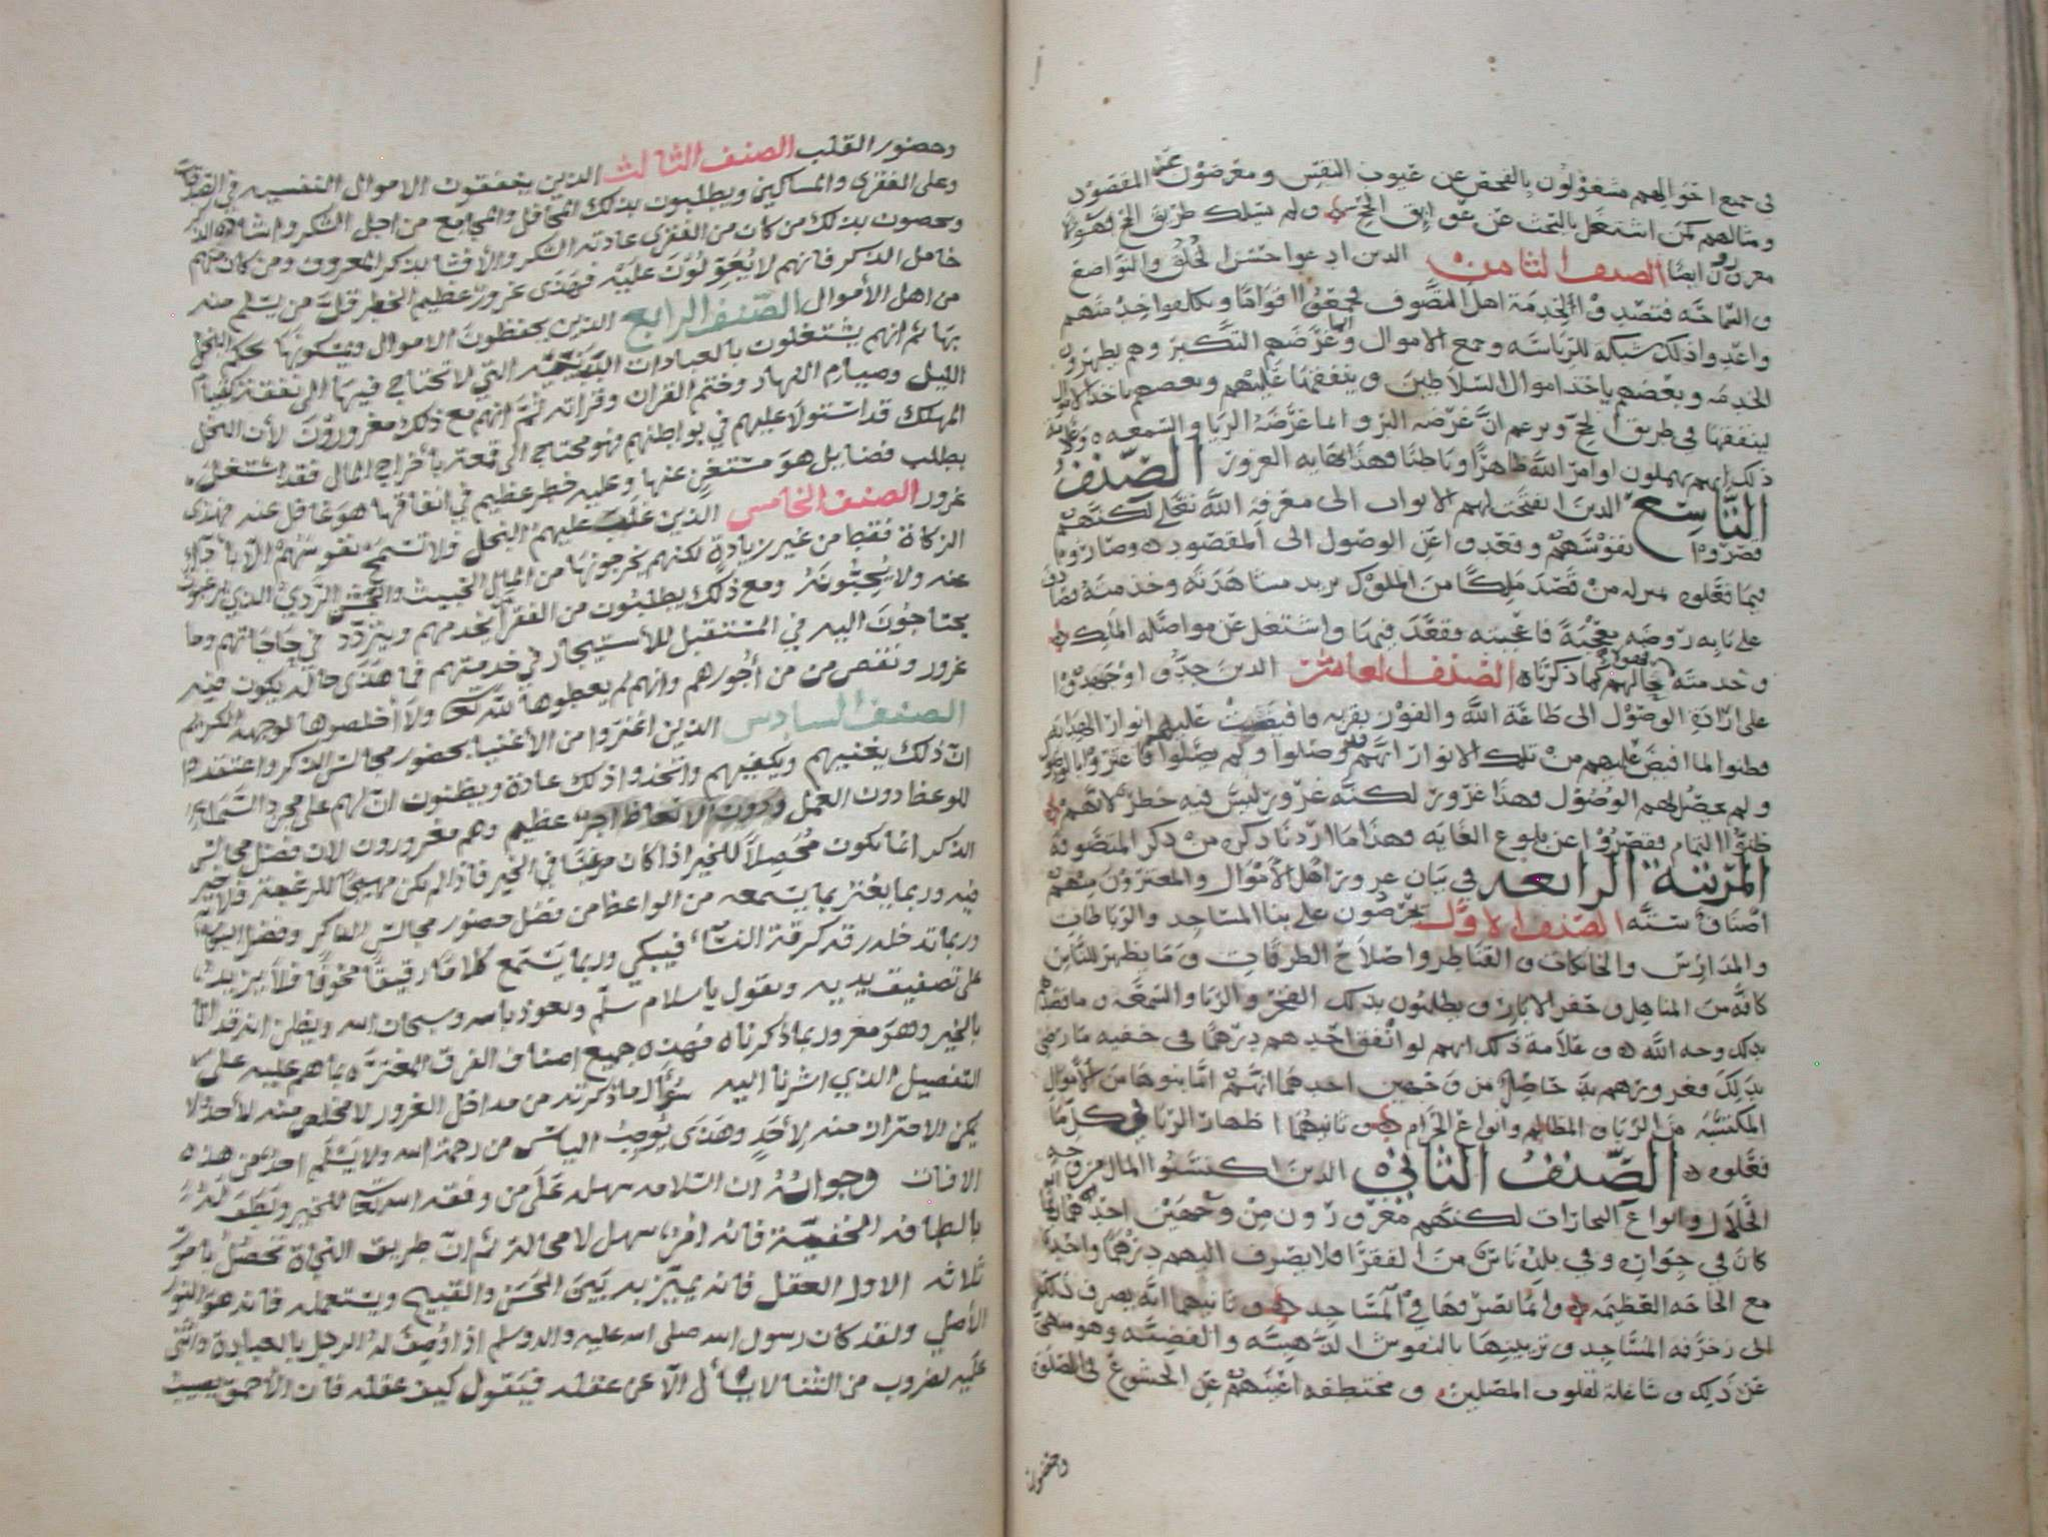 في جميع احوالهم مشغولون بالفحص عن عيوب النفس ومعرضون عن المقصود
ومثالهم كمن اشتغل بالبحث عن عوايق الحج ولم يسلك طريق الحج فهولا
مغرورون ايضا الصنف الثامن الذين ادعوا حسن الخلق والتواضع
والسماحه فتصدوا لخدمة اهل التصوف فجمعوا اقواما وتكلفوا خدمتهم
واعدوا ذلك شبكة للرياسه وجمع الاموال وانما غرضهم التكبر وهم يظهرون
الخدمه وبعضهم ياخذ اموال السلاطين وينفقها عليهم وبعضهم ياخذ الاموال
لينفقها في طريق الحج ويزعم ان غرضه البر وانما غرضه الريا والسمعه وعلامة
ذلك انهم يهملون اوامر الله ظاهرا وباطنا وهذا نهايه الغرور الصنف
التاسع الذين انفتحت لهم الابواب الى معرفة الله تعالى لكنهم
قصروا نفوسهم وقعدوا عن الوصول الى المقصود وصاروا
فيما فعلوه بمنزله من قصد ملكا من الملوك يريد مشاهدته وخدمته فصادف
على بابه روضه معجبة فاعجبته فقعد فيها واشتغل عن مواصله الملك
وخدمته فهولا حالهم كما ذكرناه الصنف العاشر الذين جدوا واجتهدوا
على ارادة الوصول الى طاعة الله والفوز بقربه فافيضت عليهم انوار الهدايه
فظنوا لما افيض عليهم من تلك الانوار انهم قد وصلوا ولم يصلوا فاغتروا بالوصول
ولم يحصل لهم الوصول وهذا غرور لكنه غرور ليس فيه خطر لانهم
ظنوا التمام فقصروا عن بلوغ الغايه وهذا ما اردنا ذكره من ذكر المتصوفة
المرتبة الرابعه في بيان غرور اهل الاموال والمغترون منهم
اصناف سته الصنف الاول يحرصون على بنا المساجد والرباطات
والمدارس والخانكات والقناطر واصلاح الطرقات وما يظهر للناس
كافه من المناهل وحفر الابار ويطلبون بذلك الفخر والريا والسمعه وما قصدهم
بذلك وجه الله وعلامة ذلك انهم لو انفق احدهم درهما في خفيه ما رضي
بذلك فغرورهم به حاصل من وجهين احدهما انهم انما بنوها من الاموال
المكتسبه من الربا والمظالم وانواع الحرام وثانيهما اظهار الريا في كل ما
فعلوه الصنف الثاني الذين اكتسبوا المال من وجه
الحلال وانواع التجارات لكنهم مغرورون من وجهين احدهما انه
كان في جواره وفي بلده ناس من الفقرا فلا يصرف اليهم درهما واحدا
مع الحاجه العظيمه وانما يصرفها في المساجد وثانيهما انه يصرف ذلك
الى زخرفه المساجد وتزيينها بالنقوش الذهبيه والفضيه وهو منهي
عن ذلك وشاغله لقلوب المصلين ومختطفه اعينهم عن الخشوع في الصلوه
وحضور
وحضور القلب الصنف الثالث الذين ينفقون الاموال النفسيه في الصدقات
وعلى الفقرى والمساكين ويطلبون بذلك المحافل والمجامع من اجل الشكر واشادة الذكر
ويخصون بذلك من كان من الفقرى عادته الشكر والأفشا بذكر المعروف ومن كان منهم
خامل الذكر فانهم لا يعولون عليه فهذى غرور عظيم الخطر قل من يسلم منه
من اهل الأموال الصنف الرابع الذين يحفظون الاموال ويمسكونها بحكم البخل
بها ثم انهم يشتغلون بالعبادات البدنيه التي لا تحتاج فيها الى نفقة كقيام
الليل وصيام النهار وختم القران وقراته ثم انهم مع ذلك مغرورون لأن البخل
المهلك قد استولا عليهم في بواطنهم فهو محتاج الى قمعه بأخراج المال فقد اشتغل
بطلب فضايل هو مستغن عنها وعليه خطر عظيم في انفاقها هو غافل عنه فهذى
غرور الصنف الخامس الذين غلب عليهم البخل ولا تسمح نفوسهم الا باداء
الزكاة فقط من غير زيادة لكنهم يخرجونها من المال الخبيث والتمر الردي الذي يرغبون
عنه ولا يحبونه ومع ذلك يطلبون من الفقرا يخدمهم ويتردد في حاجاتهم وما
يحتاجون اليه في المستقبل للأستيجار في خدمتهم فما هذى حاله يكون فيه
غرور ونقص من أجورهم وانهم لم يعطوها لله تعا ولا أخلصوها لوجهه الكريم
الصنف السادس الذين اغتروا من الأغنيا بحضور مجالس الذكر واعتقدوا
ان ذلك يغنيهم ويكفيهم واتخذوا ذلك عادة ويظنون ان لهم على مجرد السماع
للوعظ دون العمل ودون الاتعاظ اجر عظيم وهم مغرورون لان فضل مجالس
الذكر انما يكون محصلا للخير اذا كان مرغبا في الخير فاذا لم يكن مهيجا للرغبة فلا خير
فيه وربما يغتر بما يسمعه من الواعظ من فضل حضور مجالس الذكر وفضل البكاء
وربما تدخله رقه كرقة النساء فيبكي وربما يسمع كلاما رقيقا مخوفا فلا يزيد
على تصفيق يديه ويقول يا سلام سلم ونعوذ بالله وسبحان الله ويظن انه قد اتا
بالخير وهو مغرور بما ذكرناه فهذه جميع اصناف الفرق المغتره بما هم عليه على
التفصيل الذي اشرنا اليه سؤال ما ذكرته من مداخل الغرور لا مخلص منه لأحد ولا
يمكن الاحتراز منه لأحد وهذى يوجب الياس من رحمة الله ولا يسلم احد من هذه
الافات وجوابه ان السلامه سهله على من وفقه الله تعا للخير ولطف له
بالطافه الخفية فانه امر سهل لا محالة ثم ان طريق النجاة تحصل بامور
ثلاثه الاول العقل فانه يميز به بين الحسن والقبيح ويستعمله فانه هو النور
الأصلي ولقد كان رسول الله صلى الله عليه واله وسلم اذا وصف له الرجل بالعبادة واثنى
عليه بضروب من الثنا لا يسأل الا عن عقله فيقول كيف عقله فان الأحمق يصيب